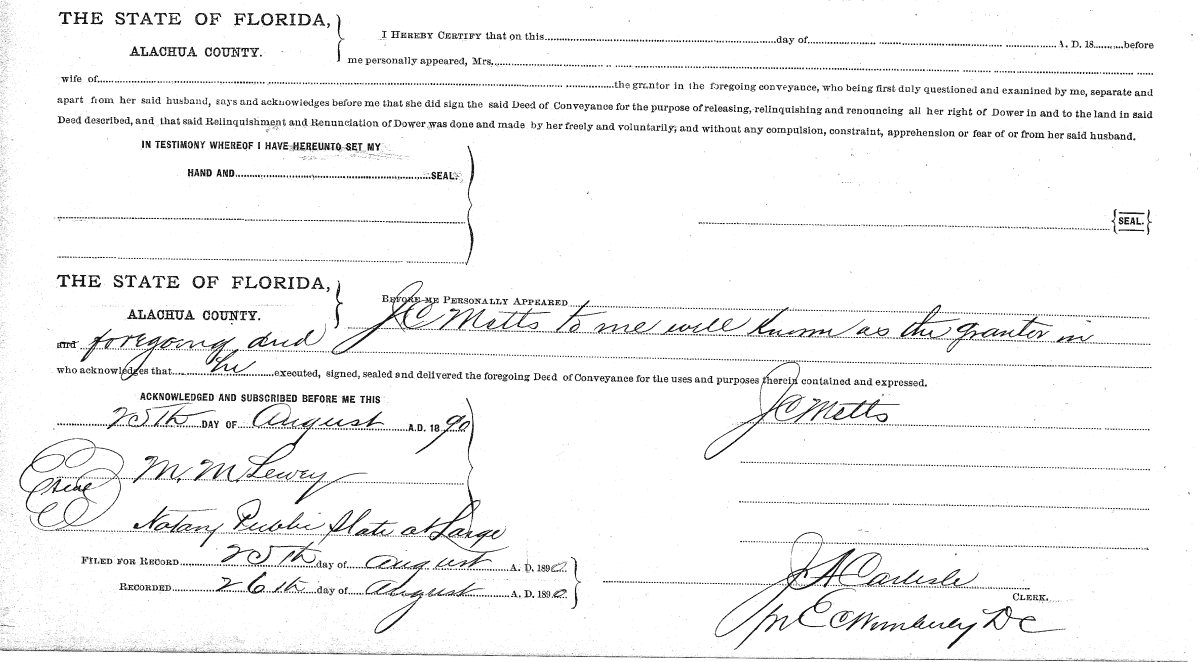 THE STATE OF FLORIDA,
ALACHUA COUNTY.
I HEREBY CERTIFY that on this day of A. D. 18 before
me personally appeared, Mrs.
wife of the grantor in the foregoing conveyance, who being first duly questioned and examined by me, separate and
apart from her said husband, says and acknowledges before me that she did sign the said Deed of Conveyance for the purpose of releasing, relinquishing and renouncing all her right of Dower in and to the land in said
Deed described, and that said Relinquishment and Renunciation of Dower was done and made by her freely and voluntarily, and without any compulsion, constraint, apprehension or fear of or from her said husband.
IN TESTIMONY WHEREOF I HAVE HEREUNTO SET MY
HAND AND SEAL.
SEAL.
THE STATE OF FLORIDA,
ALACHUA COUNTY.
BEFORE ME PERSONALLY APPEARED
J C Matts to me well known as the grantor in
and foregoing deed
who acknowledges that he executed, signed, sealed and delivered the foregoing Deed of Conveyance for the uses and purposes therein contained and expressed.
ACKNOWLEDGED AND SUBSCRIBED BEFORE ME THIS
25th DAY OF August A.D. 1890
J C Matts
M. M Lewey
Seal
Notary Public State at Large
FILED FOR RECORD 25th day of August A. D. 1890
RECORDED 26th day of August A. D. 1890
J A Carlisle
CLERK.
D C